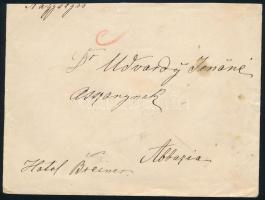 Nagyságos
Dr Udvardy Jenőné
asszonynak
Abbazia
Hotel Breiner